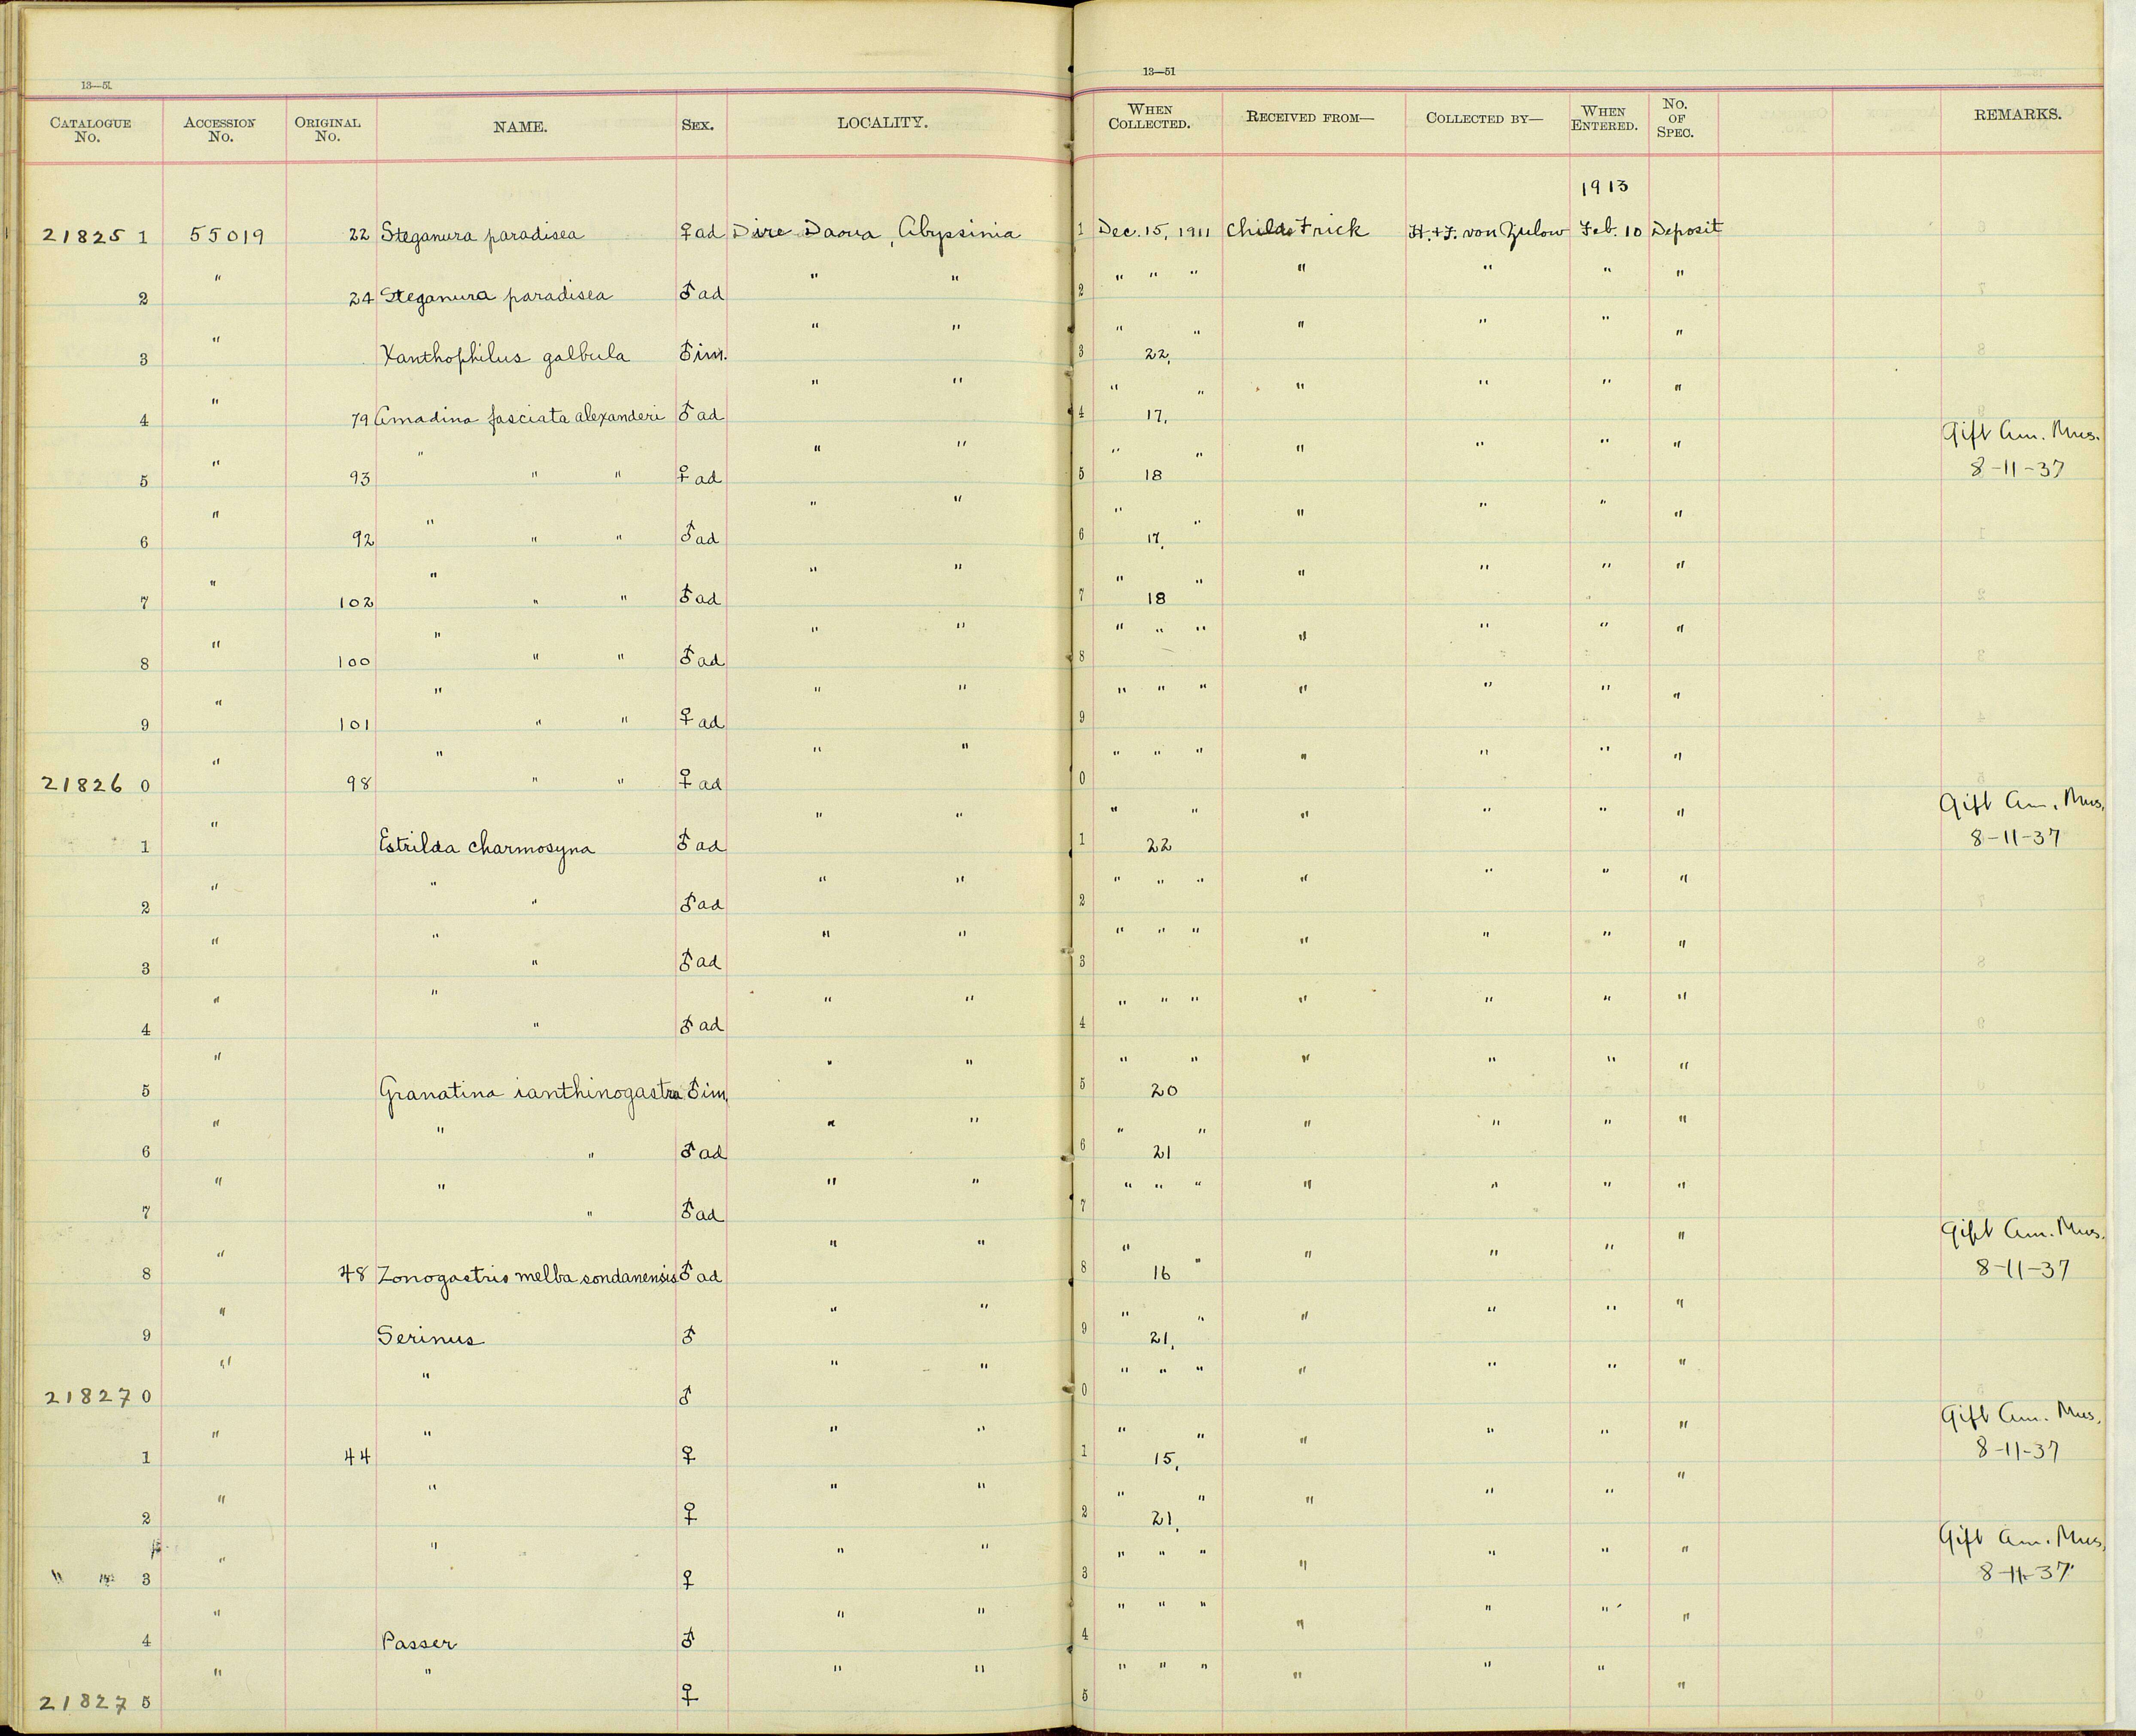 13—51
13—51
CATALOGUE No. ACCESSION No. ORIGINAL No. NAME. SEX. LOCALITY. WHEN COLLECTED. RECEIVED FROM— COLLECTED BY— WHEN ENTERED. No. OF SPEC. REMARKS.
1913
21825 1 55019 22 Steganura paradisea ♀ ad Dire Daoua, Abyssinia 1 Dec. 15, 1911 Childs Frick H. + F. von Zulow Feb. 10 Deposit
2 " 24 Steganura paradisea ♂ ad " " 2 " " " " " " "
3 " Xanthophilus galbula ♂ im. " " 3 " 22, " " " " "
4 " 79 Amadina fasciata alexanderi ♂ ad " " 4 " 17, " " " " "
5 " 93 " " " ♀ ad " " 5 " 18 " " " " " Gift Am. Mus. 8-11-37
6 " 92 " " " ♂ ad " " 6 " 17. " " " " "
7 " 102 " " " ♂ ad " " 7 " 18 " " " " "
8 " 100 " " " ♂ ad " " 8 " " " " " " "
9 " 101 " " " ♀ ad " " 9 " " " " " " "
21826 0 " 98 " " " ♀ ad " " 0 " " " " " " "
1 " Estrilda charmosyna ♂ ad " " 1 " 22 " " " " " Gift Am. Mus. 8-11-37
2 " " " ♂ ad " " 2 " " " " " " "
3 " " " ♂ ad " " 3 " " " " " " "
4 " " " ♂ ad " " 4 " " " " " " "
5 " Granatina ianthinogastra ♂ im. " " 5 " 20 " " " " "
6 " " " ♂ ad " " 6 " 21 " " " " "
7 " " " ♂ ad " " 7 " " " " " " "
8 " 48 Zonogastris melba sondanensis ♂ ad " " 8 " 16 " " " " " Gift Am. Mus. 8-11-37
9 " Serinus ♂ " " 9 " 21, " " " " "
21827 0 " " ♂ " " 0 " " " " " " "
1 " 44 " ♀ " " 1 " 15, " " " " " Gift Am. Mus. 8-11-37
2 " " ♀ " " 2 " 21, " " " " "
" 3 " " ♀ " " 3 " " " " " " " Gift Am. Mus. 8-11-37
4 " Passer ♂ " " 4 " " " " " " "
21827 5 " " ♀ " " 5 " " " " " " "